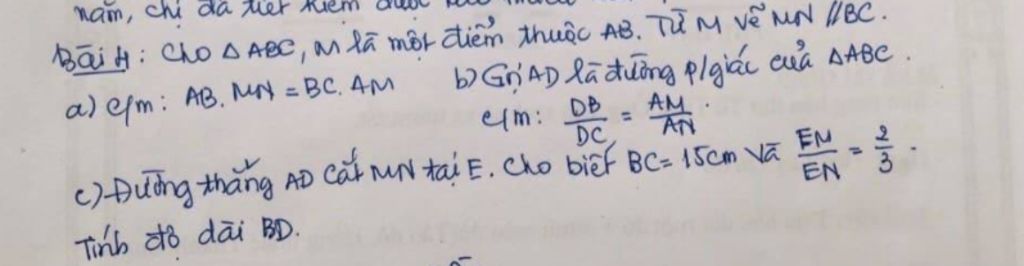 năm, chị đã tiết kiệm được
Bài 4: Cho △ABC, M là một điểm thuộc AB. Từ M vẽ MN // BC.
a) c/m: AB. MN = BC. AM b) Gọi AD là đường p/giác của △ABC.
c/m: DB/DC = AM/AN.
c) Đường thẳng AD cắt MN tại E. Cho biết BC = 15cm và EM/EN = 2/3.
Tính độ dài BD.